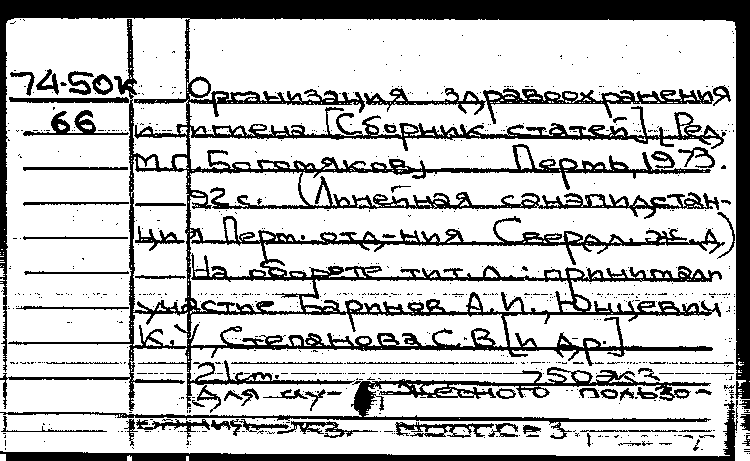 74-50к Организация здравоохранения
66 и гигиена [Сборник статей], Ред.
М.П. Богомякову Пермь, 1973.
92 с. (Линейная санэпидстан-
ция Перм. отд-ния Свердл. ж.д)
На обороте тит. л.: принимали
участие Баринов А.И., Юнцевич
К.У, Степанова С.В [и др.]
21 ст. 750экз
Для слу- жебного пользо-
экз.